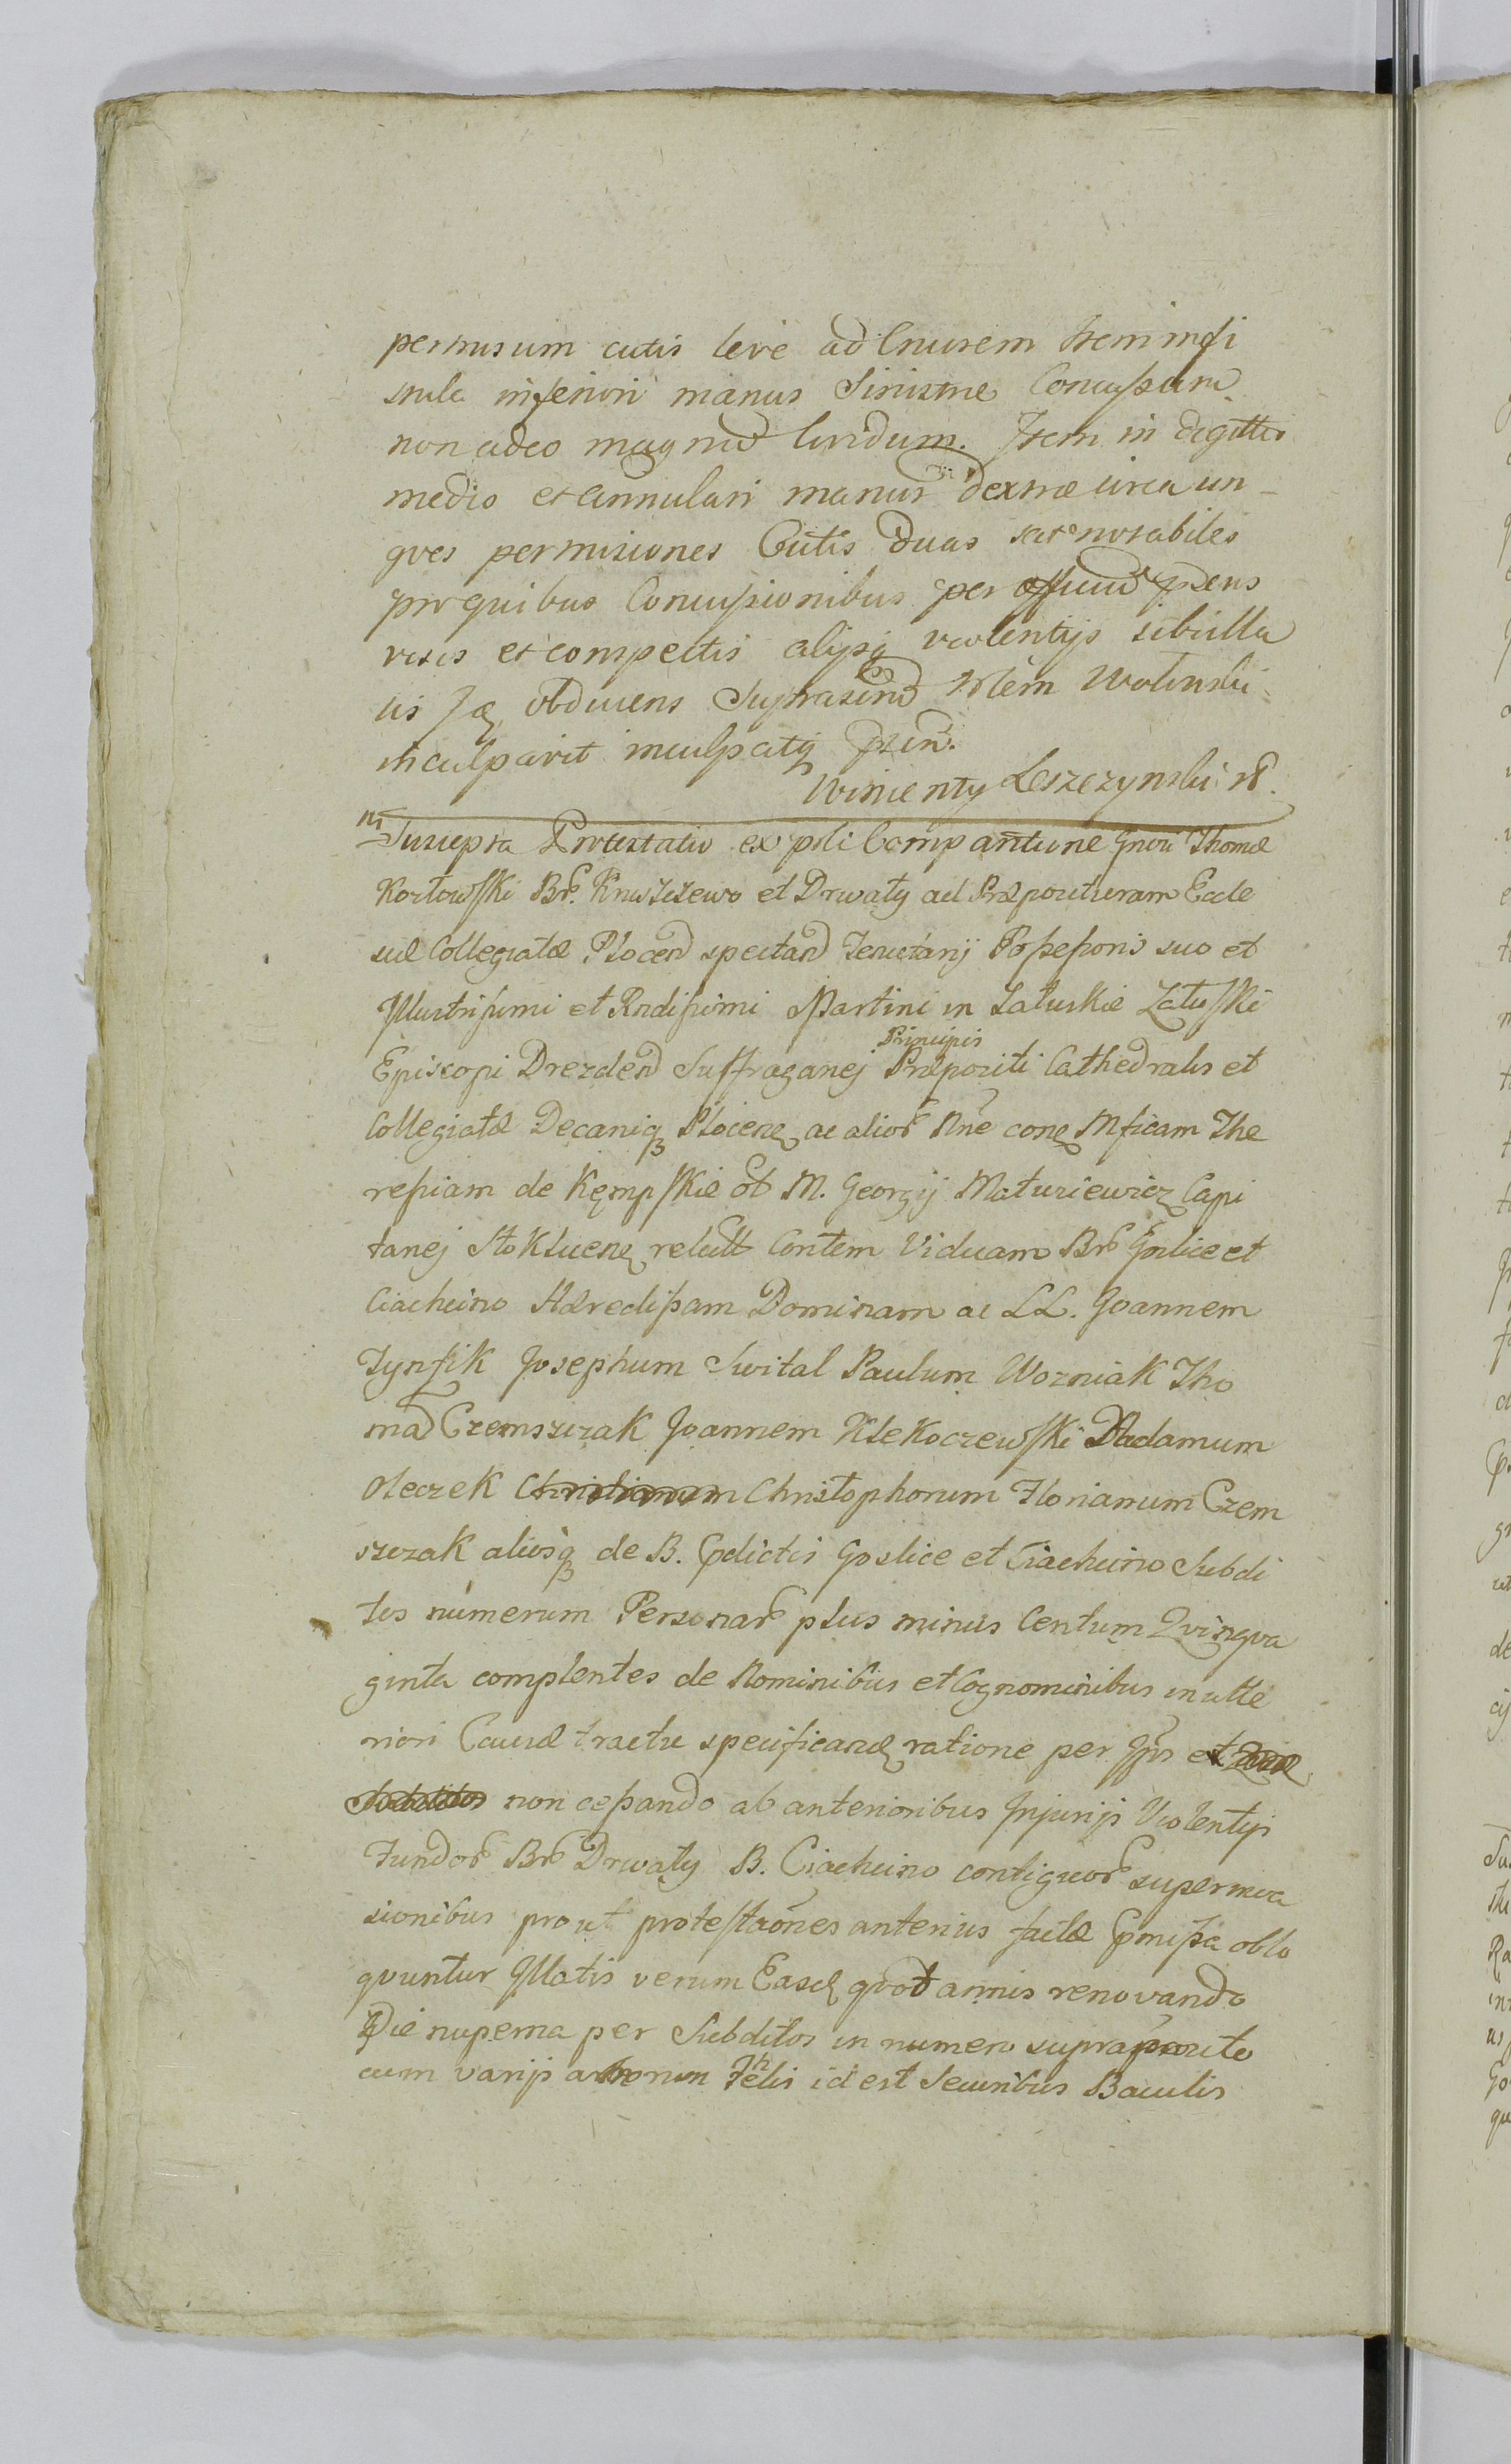 permisum cutis leve ad Cnusem Item in fi
stula inferiori manus Sinistræ Concussum
non adeo magnũ lividum. Item in digittis
medio et annulari manus dextræ circa un-
gves permisiones Cutis duas sat notabiles
pro quibus Concussionibus per officiũ pñens
visis et conspectis alijsq violentijs sibi illa
tis Jq obducens Suprascrip Nlem Wolinski
inculpavit inculpatq pñn.
Wincenty Leszczynski
Suscepta Protestatio ex psli Companitione Gnosi Thomæ
Kozłowski Br. Kruszczewo et Drwały ad Præposituram Eccle
siæ Collegiatæ Plocen spectan Tenutarij Possessoris suo et
Illustrissimi et Rndissimi Martini in Załuskie Załuski
Principis
Episcopi Drezden Suffraganej Præpositi Cathedralis et
Collegiatæ Decaniq Plocens ac alior Nne cong Mficam The
resiam de Kempskie ol M. Georgij Matusiewicz Capi
tanej Stokliens relict Contem Viduam Br Goslice et
Ciachcino Hæredissam Dominam ac LL. Joannem
Tynsik Josephum Swital Paulum Wozniak Tho
mã Czemszczak Joannem Klekoczewski Adamum
Oleczek Christianum Christophorum Florianum Czem
szczak aliosq de B. pdictis Goslice et Ciachcino Subdi
tos numerum Personar plus minus Centum Qvinqva
ginta complentes de Nominibus et Cognominibus in ulte
riori Causæ tractu specificand ratione per Ipos et
Subditos non cessando ab anterioribus Injurijs Violentijs
Fundor Br Drwały B. Ciachcino contiguor supermea
sionibus prout protestaones anterius factæ pmissa oblo
qvuntur Illatis verum Easd qvot annis renovando
Die nuperna per Subditos in numero supraposito
cum varijs armorum Telis id est Securibus Baculis